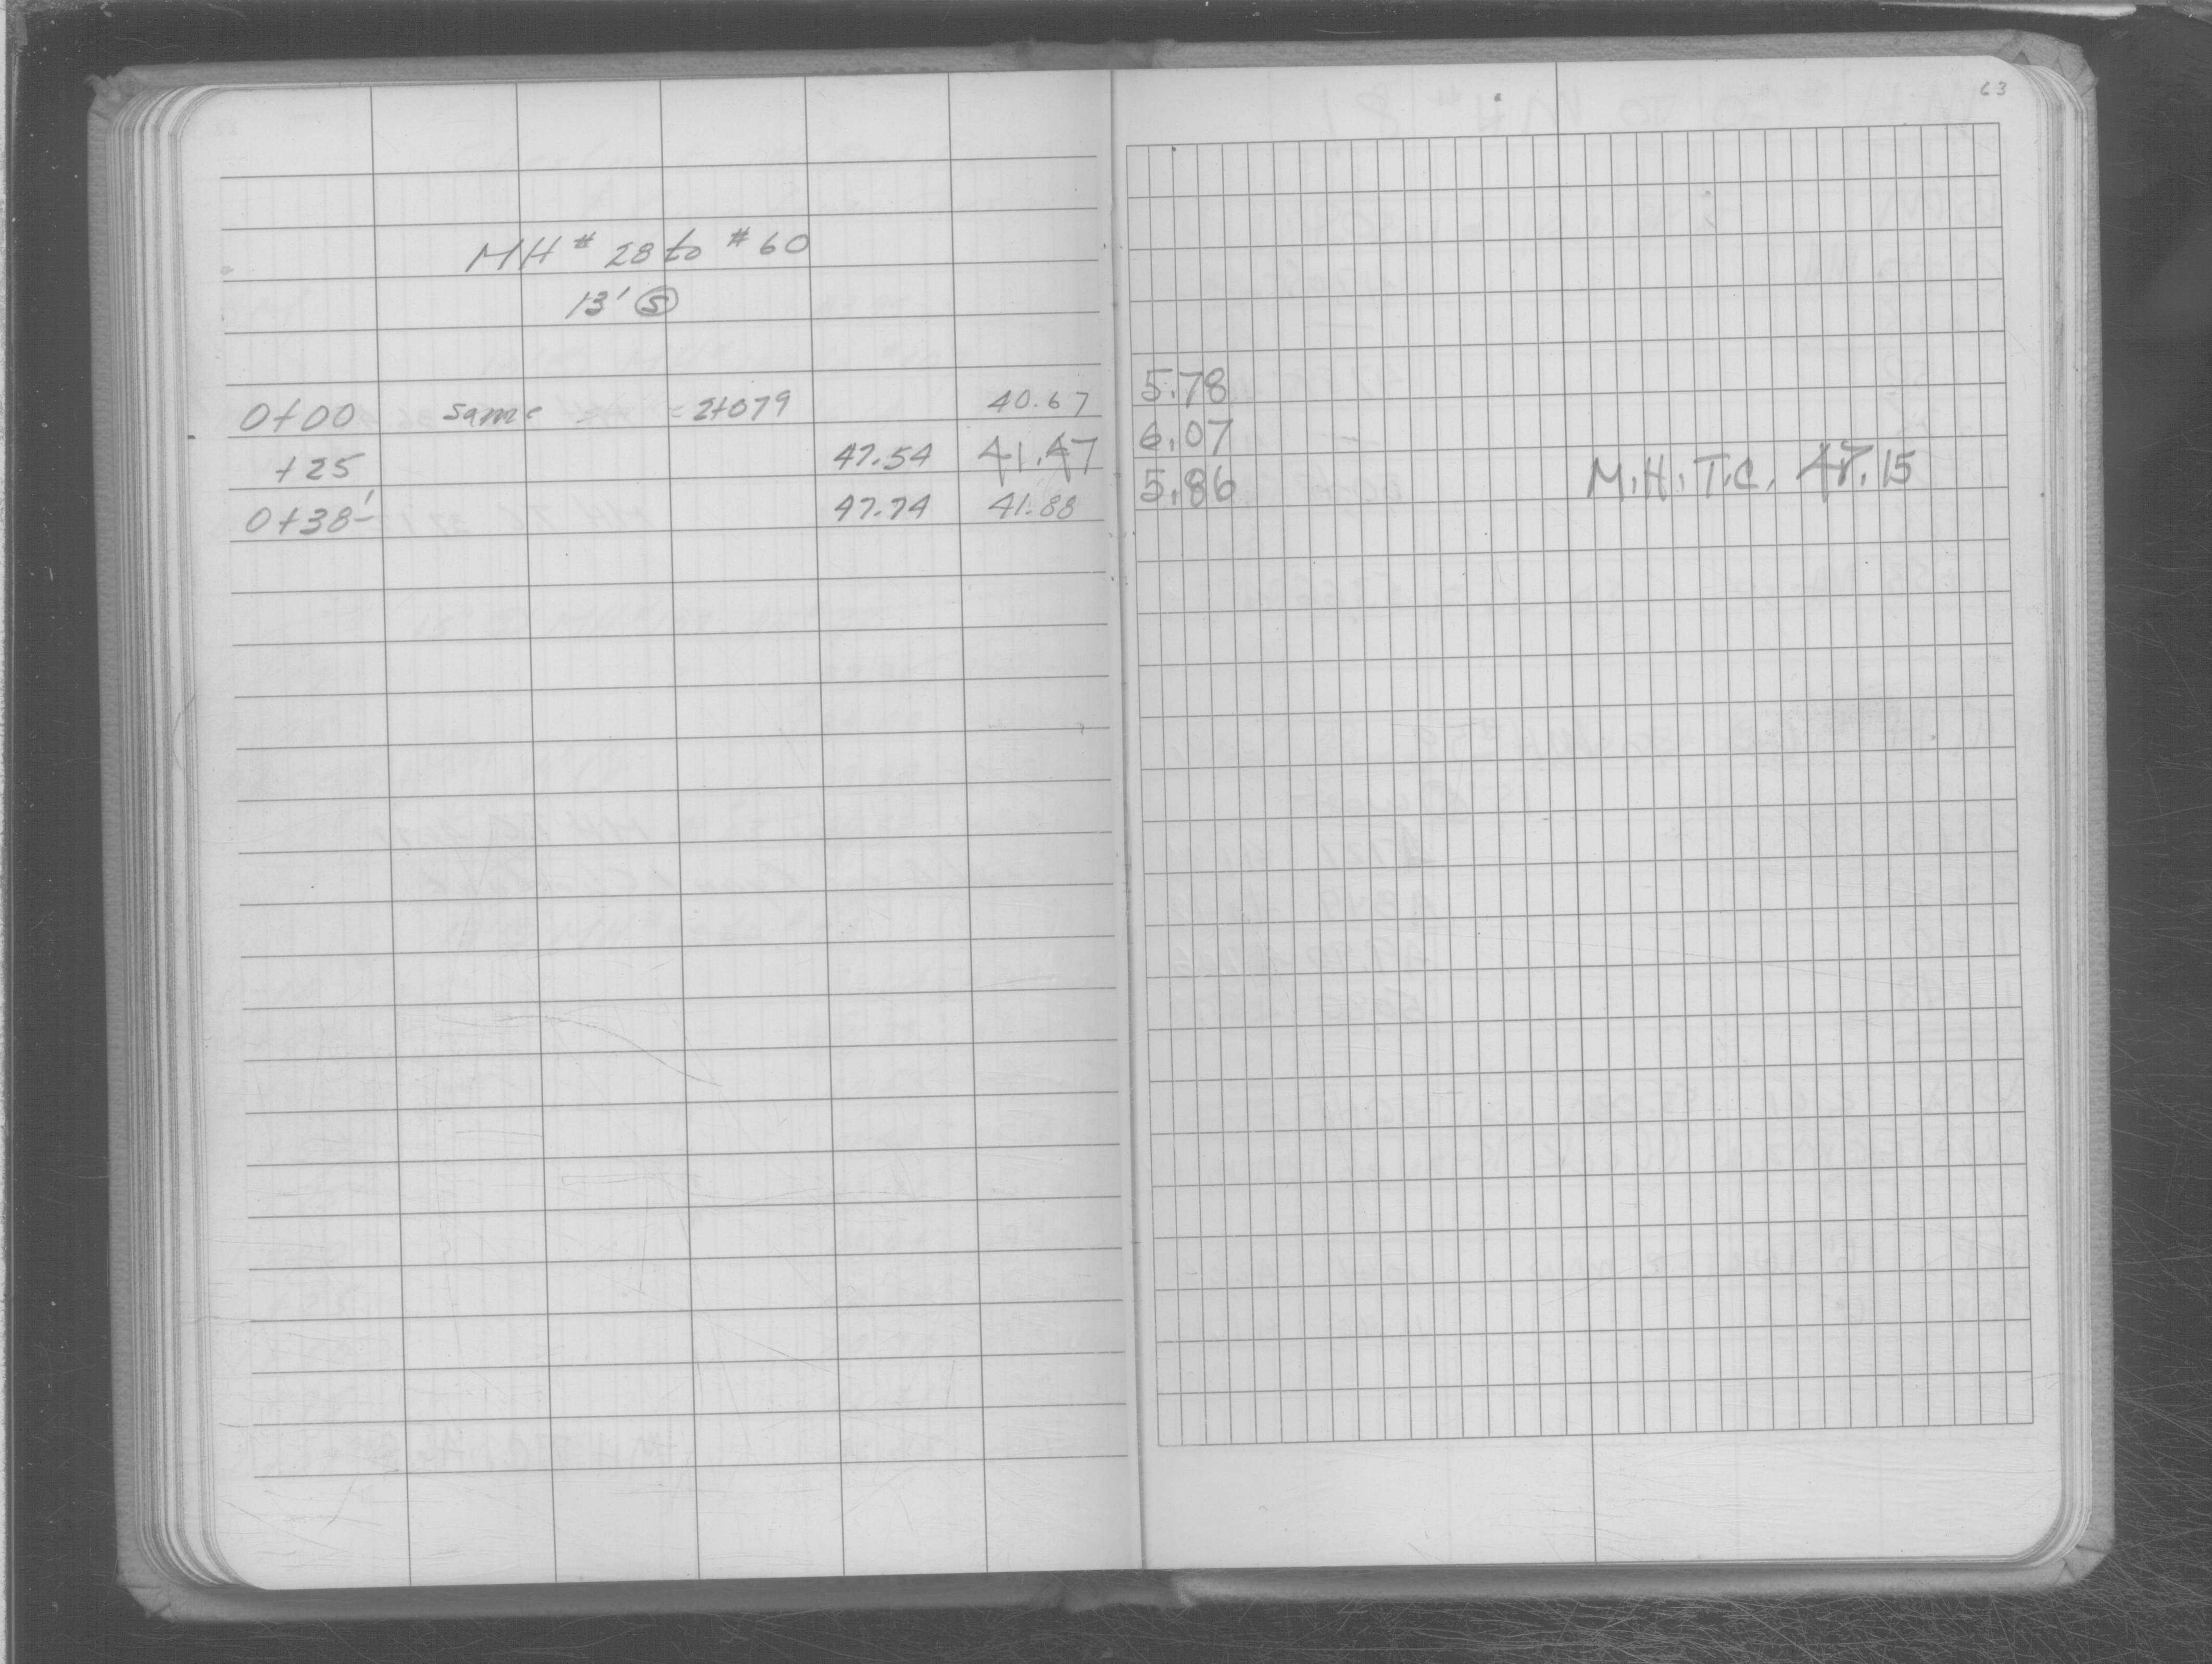 63
MH # 28 to # 60
13' S
0+00 same = 2+079 40.67 5.78
+25 47.54 41.47 6.07
0+38' 47.74 41.88 5.86 M.H.T.C. 47.15